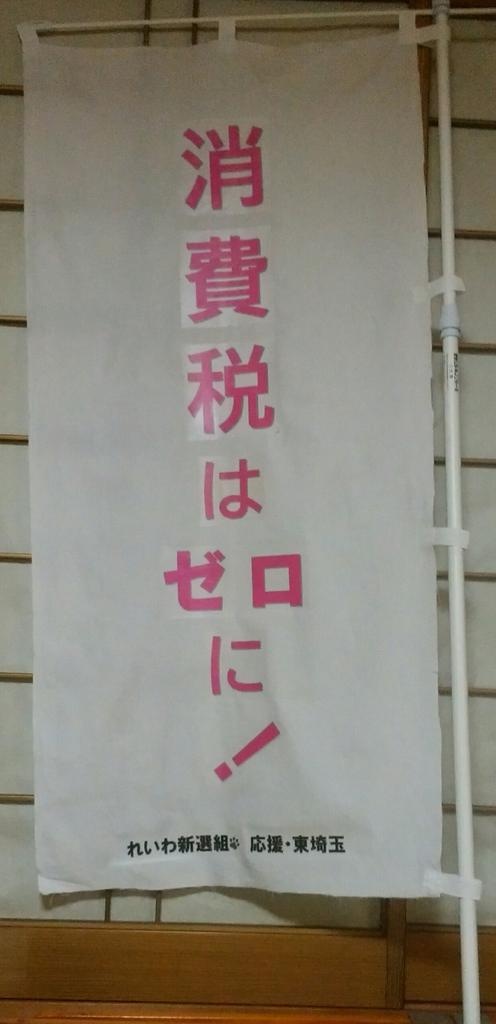 消費税は
ゼロ
に!
れいわ新選組 応援・東埼玉